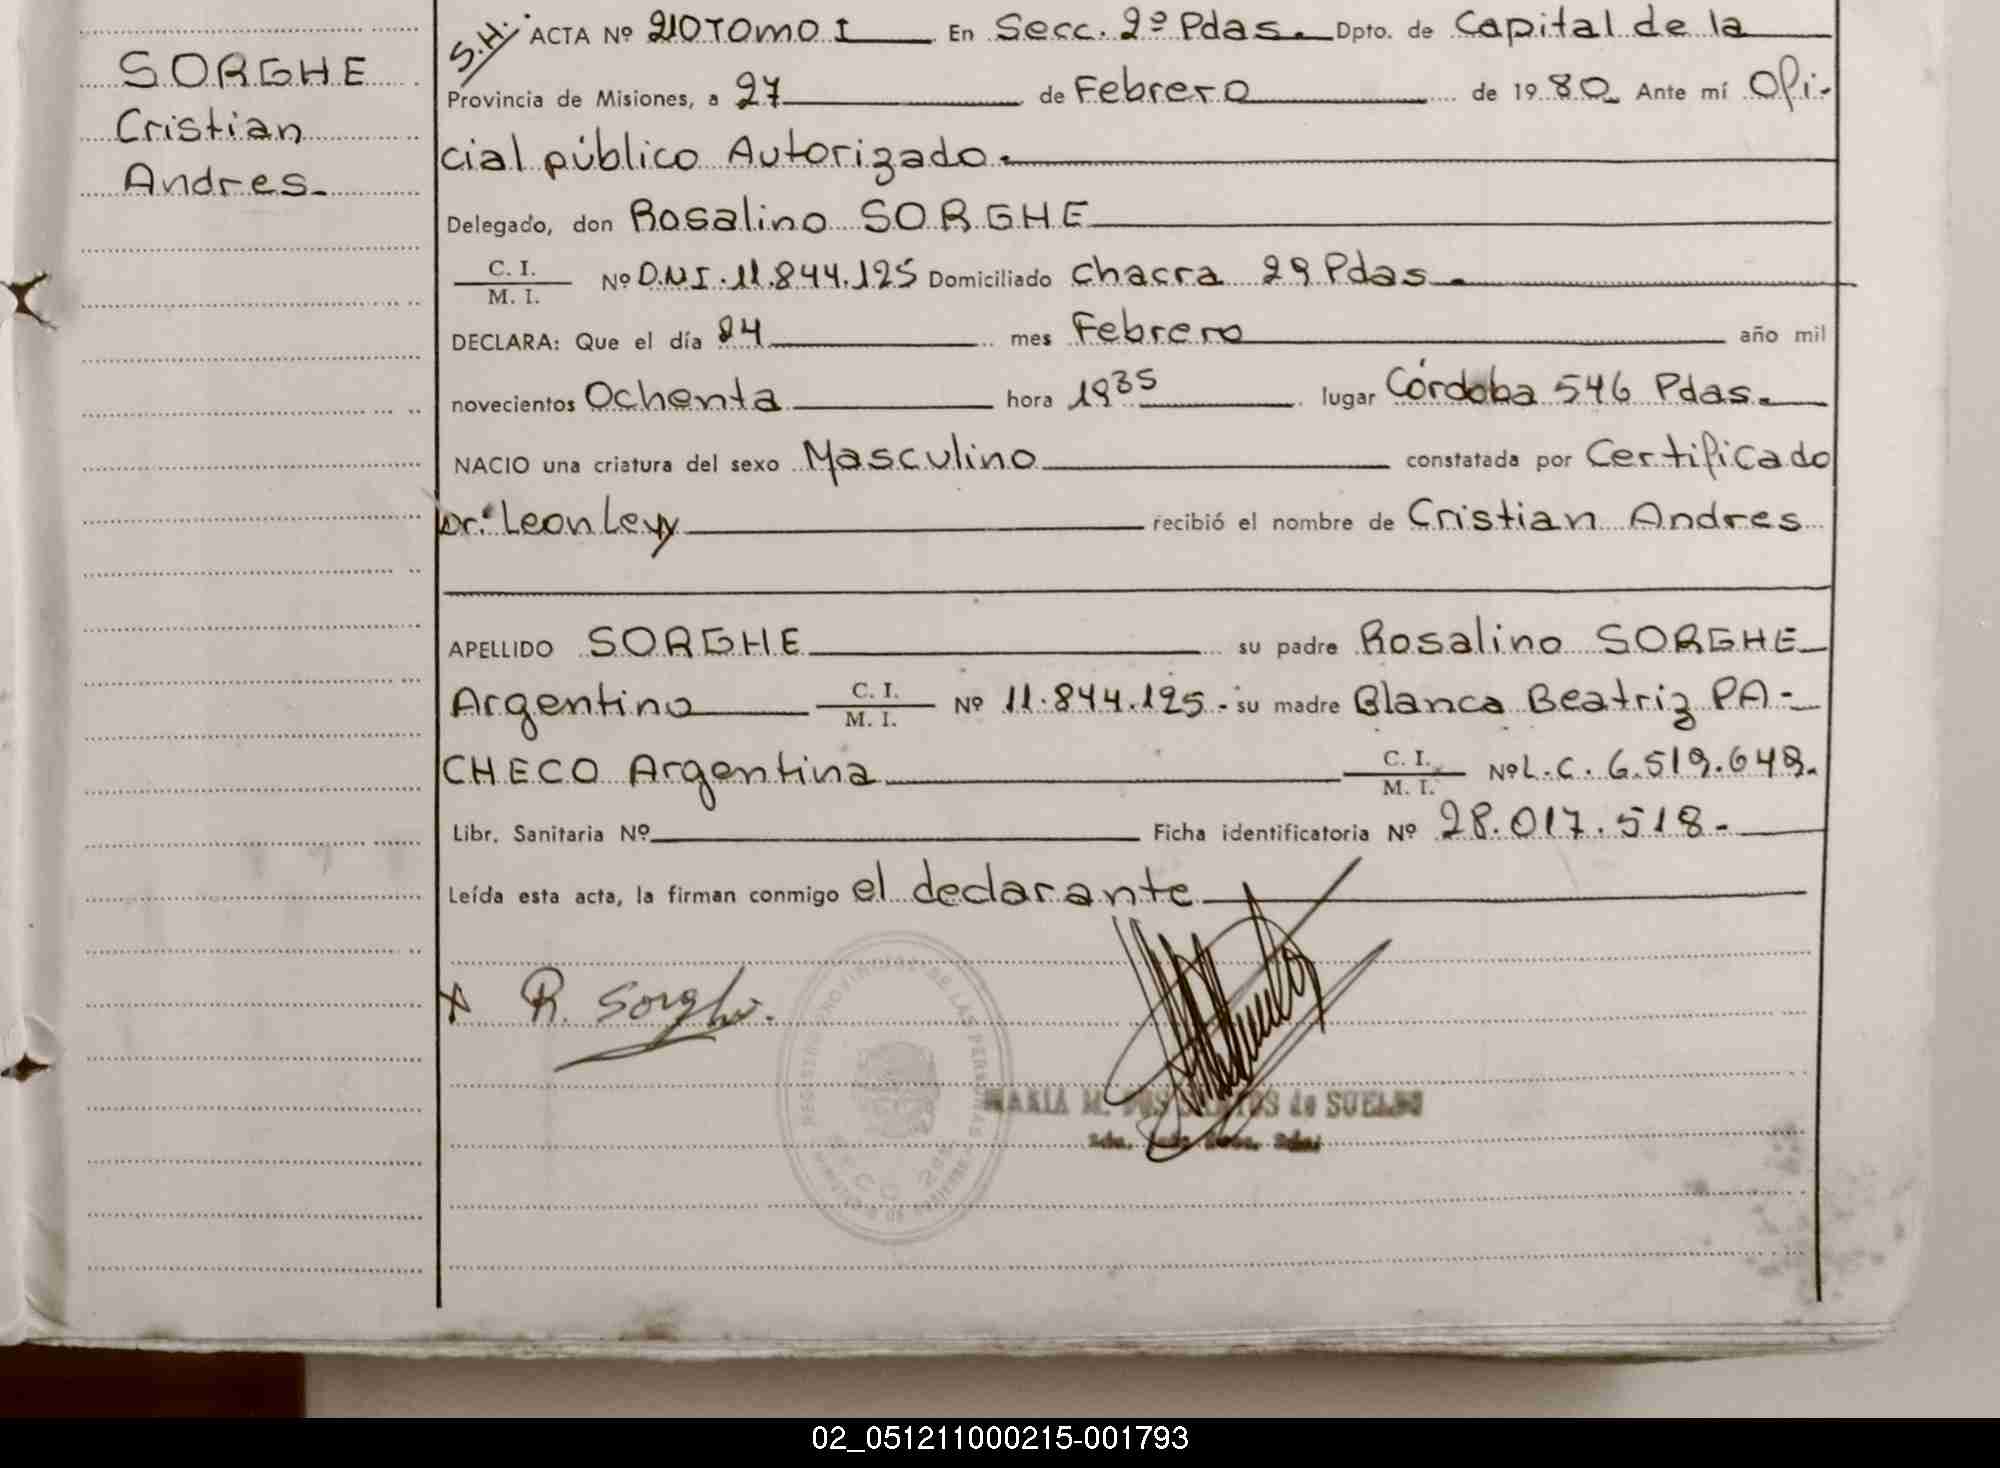 SORGHE
Cristian
Andres.
S.H. ACTA Nº 210 Tomo I En Secc. 2º Pdas. Dpto. de Capital de la
Provincia de Misiones, a 27 de Febrero de 1980 Ante mí Ofi-
cial público Autorizado.
Delegado, don Rosalino SORGHE
C. I.
M. I. Nº D.N.I. 11.844.125 Domiciliado Chacra 29 Pdas.
DECLARA: Que el día 24 mes Febrero año mil
novecientos Ochenta hora 19 35 lugar Córdoba 546 Pdas.
NACIO una criatura del sexo Masculino constatada por Certificado
Dr. Leon Levy recibió el nombre de Cristian Andres
APELLIDO SORGHE su padre Rosalino SORGHE
Argentino C. I.
M. I. Nº 11.844.125. su madre Blanca Beatriz PA-
CHECO Argentina C. I.
M. I. Nº L.C. 6.519.649.
Libr. Sanitaria Nº Ficha identificatoria Nº 28.017.518.
Leída esta acta, la firman conmigo el declarante
R. Sorghe.
REGISTRO PROVINCIAL DE LAS PERSONAS
MARIA M. DOS SANTOS de SUELDO
02_051211000215-001793